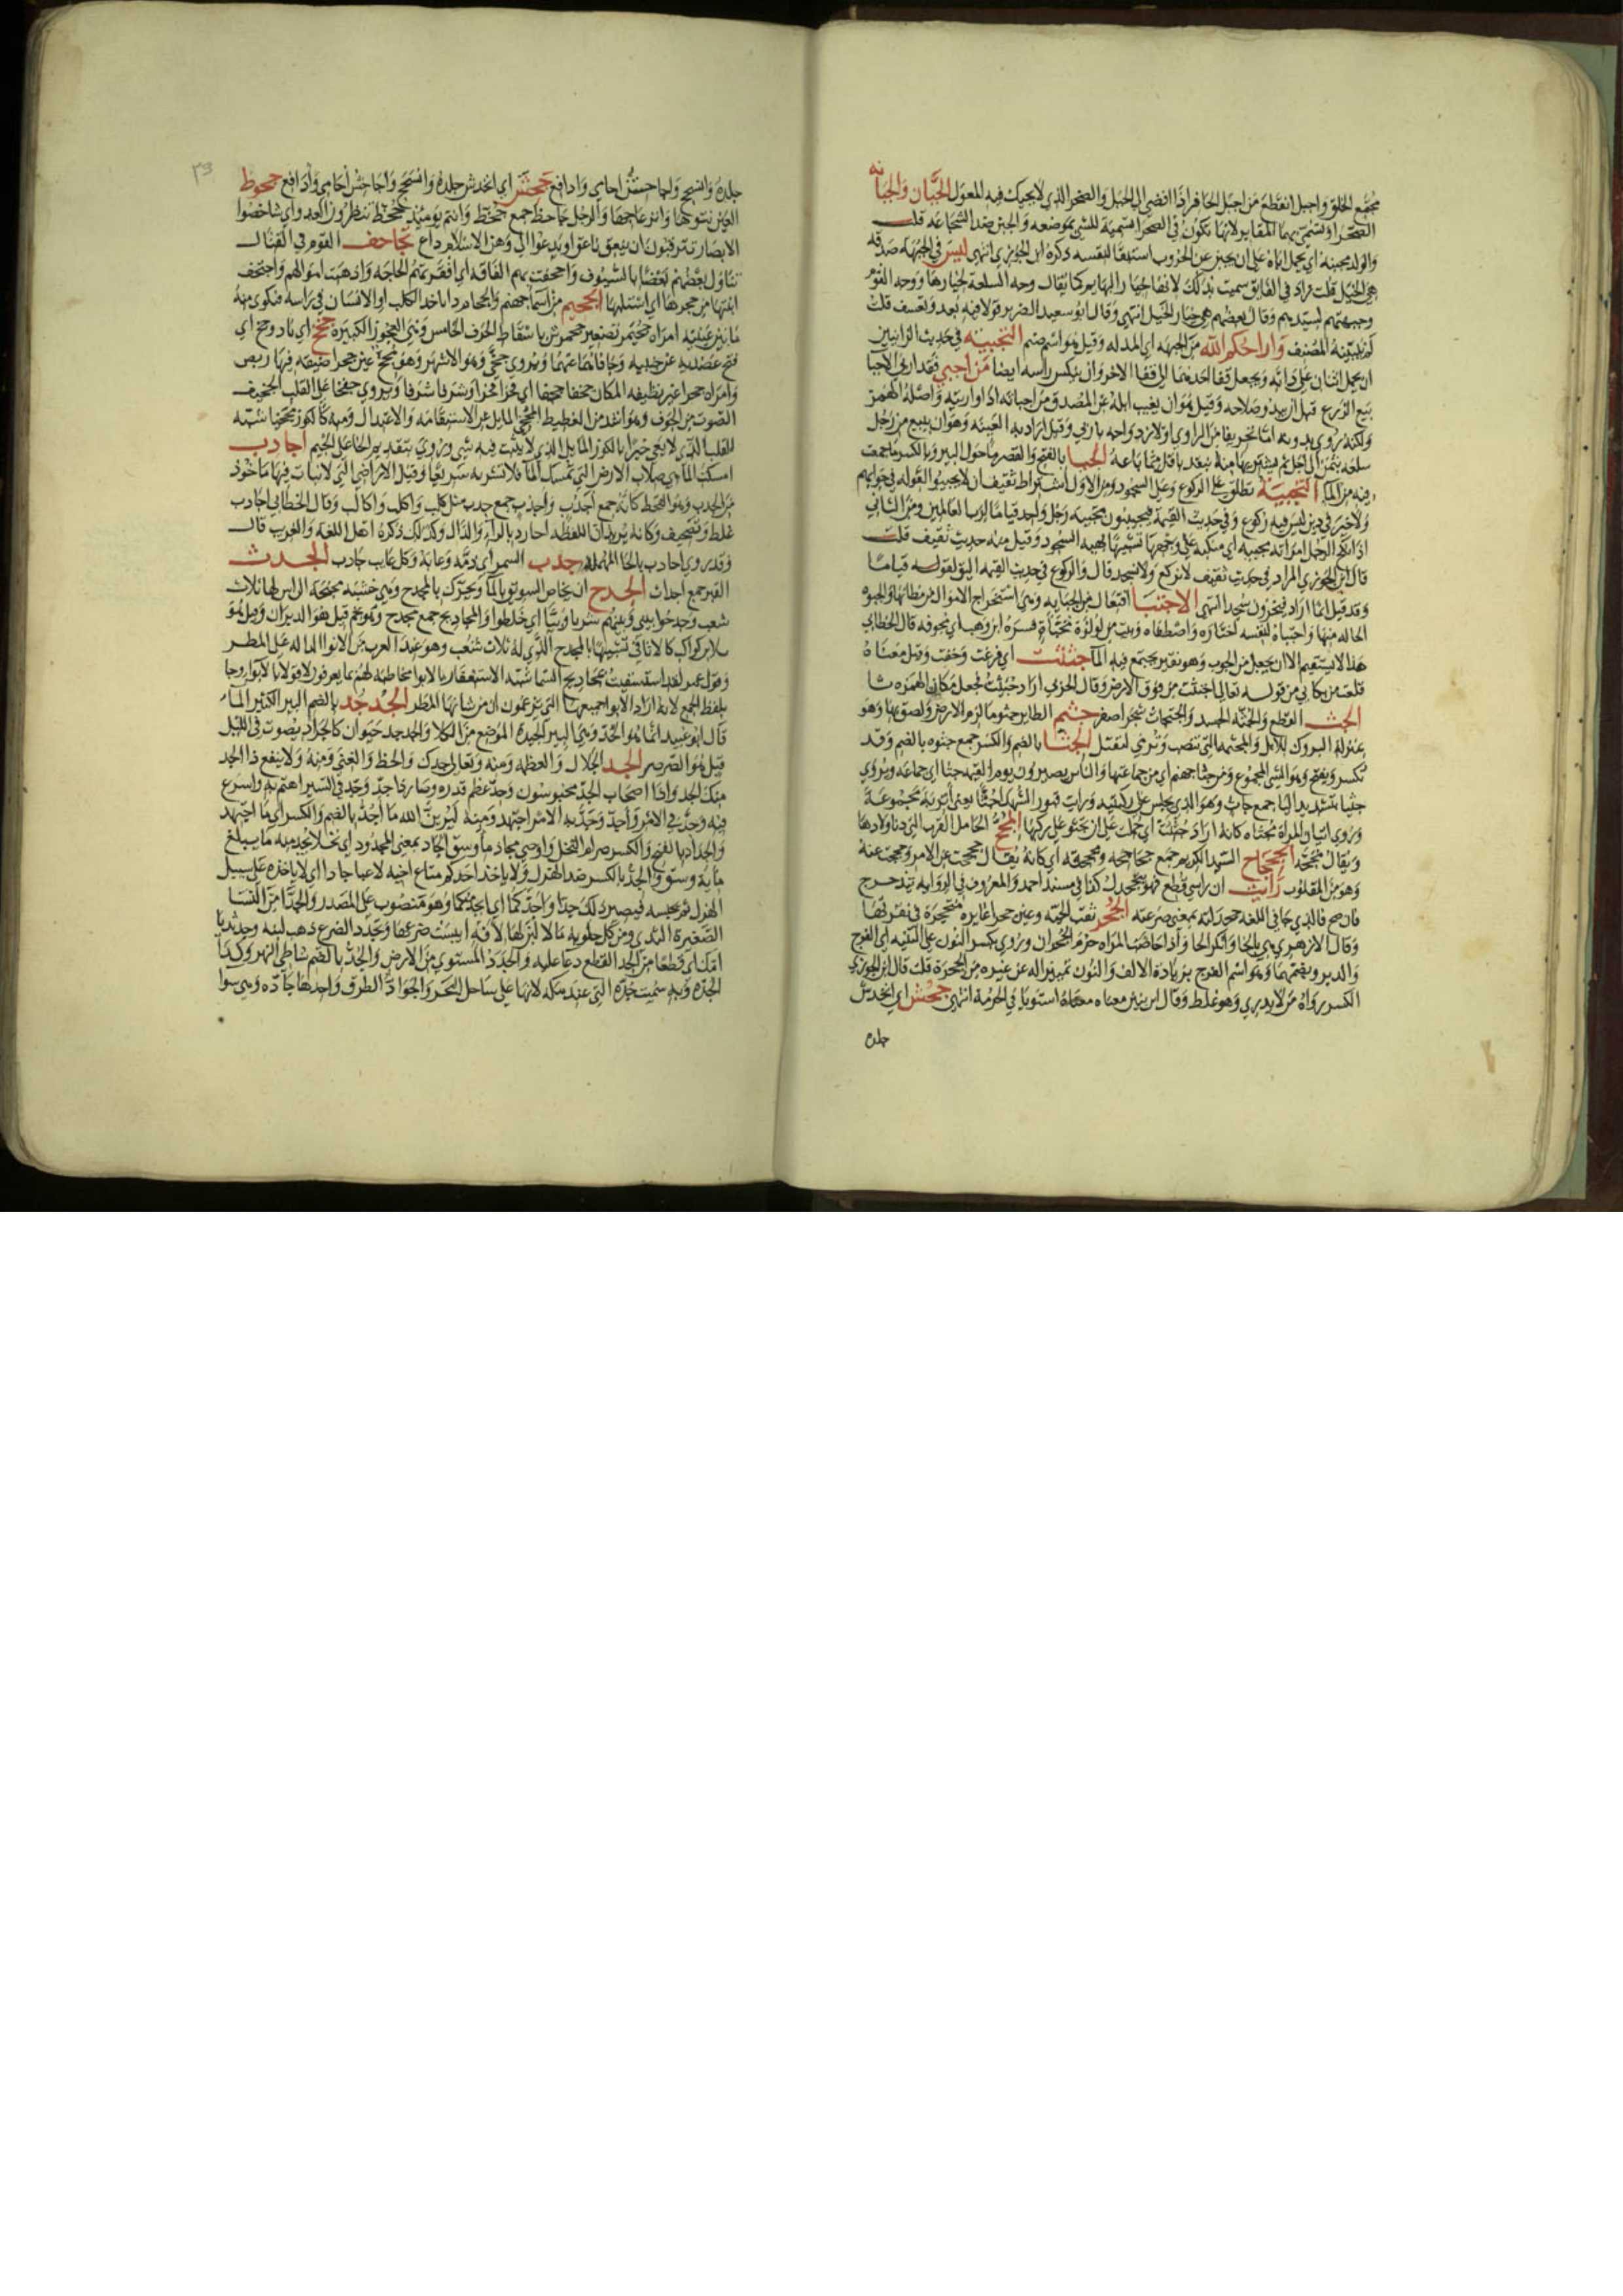 مجتمع الخلق واجبل انقطع من اجبل الحافر اذا افضى الى الجبل والصخر الذي لا يحيك فيه المعول الجبان والجبانة
الصحرا وتسمى بهما المقابر لانها تكون في الصحرا تسمية للشي بموضعه والجبن ضد الشجاعه قلت
والولد مجبنة اي يحمل اباه على ان يجبن عن الحروب استبقا لنفسه ذكره ابن الجوزي انتهى ليس في الجبهة صدقة
هي الخيل قلت زاد في الفايق سميت بذلك لانها خيار البهايم كما يقال وجه السلعة لخيارها ووجه القوم
وجبهتهم لسيدهم وقال بعضهم هي خيار الخيل انتهى وقال ابو سعيد الضرير قولا فيه بعد وتعسف قلت
لم يبينه المصنف واراحكم الله من الجبهه اي المذله وقيل هو اسم صنم التجبيه في حديث الزانيين
ان يحمل اثنان على دابة ويجعل قفا احدهما الى قفا الاخر وان ينكس راسه ايضا من اجبى فقد اربى الاجبا
بيع الزرع قبل ان يبدو صلاحه وقيل هو ان يغيب ابله عن المصدق من اجباته اذا واريته واصله الهمز
ولكنه روي بدونه اما تحريفا من الراوي او لازدواجه باربى وقيل اراد به العينه وهو ان يبيع من رجل
سلعه بثمن الى اجل ثم يشتريها منه بنقد باقل مما باعه الجبا بالفتح والقصر ما حول البير وبالكسر ما جمعت
فيه من الماء التجبية تطلق على الركوع وعلى السجود ومن الاول اشتراط ثقيف ان لا يجبوا لقوله في جوابهم
ولا خير في دين ليس فيه ركوع وفي حديث القيمة فيجبون تجبية رجل واحد قياما لرب العالمين ومن الثاني
اذا نكح الرجل امراته مجبيه اي منكبه على وجهها تشبيها بهيه السجود وقيل منه حديث ثقيف قلت
قال ابن الجوزي المراد في حديث ثقيف لا نركع ولا نسجد قال والركوع في حديث القيمه اليق لقوله قياما
وقد قيل انما اراد فيخرون سجدا انتهى الاجتبا افتعال من الجبايه وهي استخراج الاموال من مظانها والجبوه
الحاله منها واجتباه لنفسه اختاره واصطفاه وبيت من لولوة مجباة فسره ابن وهب اي مجوفه قال الخطابي
هذا لا يستقيم الا ان يجعل من الجوب وهو نقير يجتمع فيه الماء جثثت اي فزعت وخفت وقيل معناه
قلعت من مكاني من قوله تعالى اجتثت من فوق الارض وقال الحربي اراد جئثت فجعل مكان الهمزه ثا
الجث القطع والجثه الجسد والجثجاث شجر اصفر جثم الطاير جثوما لزم الارض ولصق بها وهو
بمنزلة البروك للابل والمجثمه التي تنصب وترمى لتقتل الجثا بالضم والكسر جمع جثوه بالضم وقد
تكسر وتفتح وهو الشي المجموع ومن جثا جهنم اي من جماعتها والناس يصيرون يوم القيمه جثا اي جماعه وروي
جثيا بتشديد اليا جمع جاث وهو الذي يجلس على ركبتيه ورايت قبور الشهدا جثا يعني اتربة مجموعة
وروي اتيان المراة مجثاه كانه اراد جثيت اي حملت على ان تجثو على ركبها المجح الحامل القرب التي دنا ولادها
ويقال مجحة الجحجاح السيد الكريم جمع جحاجحه ومجحجه اي كانه يقال جحجحت عن الامر وحجحجت عنه
وهو من المقلوب رايت ان راسي قطع فهو يتجحدل كذا في مسند احمد والمعروف في الروايه يتدحرج
فان صح فالذي جا في اللغة جحدلته بمعنى صرعته الجحر ثقب الحيه وعين جحرا غايره منجحرة في نقرتها
وقال الازهري هي بالخا وانكر الحا واذا حاضت المراه حرم الجحران وروي بكسر النون على التثنيه اي الفرج
والدبر وبضمها وهو اسم الفرج بزيادة الالف والنون تمييزا له عن غيره من الجحرة قلت قال ابن الجوزي
الكسر رواه من لا يدري وهو غلط وقال ابن بنين معناه معناه استويا في الحرمة انتهى جحش اي انخدش
جلده
٣٩
جلده وانسحج واجاحش احامي وادافع جحش اي انخدش جلده وانسحج واجاحش احامي وادافع جحوظ
العين نتوها وانزعاجها والرجل جاحظ جمع جحظ وانتم يوميذ جحظ تنتظرون الغدوه اي شاخصوا
الابصار تترقبون ان ينعق ناعق او يدعوا الى وهن الاسلام داع تجاحف القوم في القتال
تناول بعضهم بعضا بالسيوف واجحفت بهم الفاقه اي افقرتهم الحاجه واذهبت اموالهم واجتحف
ابنتها من حجرها اي استلبها الجحيم من اسما جهنم والجحام دا ياخذ الكلب او الانسان في راسه فتكوى منه
ما بين عينيه امراه جحيمر تصغير جحمرش باسقاط الحرف الخامس وهي العجوز الكبيرة جخ اي نادى وجخ اي
فتح عضديه عن جنبيه وجافاهما عنهما ويروي جخى وهو الاشهر وهو مجخ عين جخرا ضيقه فيها رمص
وامراة جخرا غير نظيفه المكان جخفا جخفا اي فخرا فخرا وشرفا شرفا ويروي جفخا على القلب الجخيف
الصوت من الجوف وهو اشد من الغطيط المجخي المايل عن الاستقامه والاعتدال ومنه كالكوز مجخيا شبه
القلب الذي لا يعي خيرا بالكوز المايل الذي لا يثبت فيه شي وروي بتقديم الخا على الجيم اجادب
امسكت الماء هي صلاب الارض التي تمسك الماء فلا تشربه سريعا وقيل الاراضي التي لا نبات فيها ماخوذ
من الجدب وهو القحط كانه جمع اجدب واجدب جمع جدب مثل كلب واكلب واكالب وقال الخطابي اجادب
غلط وتصحيف وكانه يريد ان اللفظة احارد بالراء والدال وكذلك ذكره اهل اللغة والغريب قال
وقد روي احادب بالحا المهمله جدب السمر اي ذمه وعابه وكل عايب جادب الجدث
القبر جمع اجداث الجدح ان يخاض السويق بالماء ويحرك بالمجدح وهي خشبه مجنحة الراس لها ثلاث
شعب وجدحوا بيني وبينهم شربا وبيا اي خلطوا والمجاديح جمع مجدح وهو نجم قيل هو الدبران وقيل هو
ثلاثه كواكب كالاثافي تشبيها بالمجدح الذي له ثلاث شعب وهو عند العرب من الانوا الداله على المطر
وقول عمر لقد استسقيت بمجاديح السما شبه الاستغفار بالانوا مخاطبة لهم بما يعرفون لا قولا بالانوا وجا
بلفظ الجمع لانه اراد الانوا جميعها التي يزعمون ان من شانها المطر الجدجد بالضم البير الكثير الماء
قال ابو عبيد انما هو الجد وهي البير الجيدة الموضع من الكلا والجدجد حيوان كالجراد يصوت في الليل
قيل هو الصرصر الجد الجلال والعظمه ومنه وتعالى جدك والحظ والغنى ومنه ولا ينفع ذا الجد
منك الجد واذا اصحاب الجد محبوسون وجد عظم قدره وصار ذا جد وجد في السير اهتم به واسرع
فيه وجد في الامر واجد وجد به الامر اجتهد ومنه ليرين الله ما اجد بالضم والكسر اي ما اجتهد
والجداد بالفتح والكسر صرام النخل واوصى بجاد ماة وسق الجاد بمعنى المجدود اي نخلا يجد منه ما يبلغ
ماية وسق والجد بالكسر ضد الهزل ولا ياخذ احدكم متاع اخيه لاعبا جادا اي لا ياخذه على سبيل
الهزل ثم يحبسه فيصير ذلك جدا واجدكما اي ابجد منكما وهو منصوب على المصدر والجدا من النسا
الصغيرة الثدي ومن كل حلوبه ما لا لبن لها لافة ايبست ضرعها وتجدد الضرع ذهب لبنه وجد ثديا
امك اي قطعا من الجد القطع دعا عليه والجدد المستوي من الارض والجد بالضم شاطى النهر وكذا
الجده وبه سميت جده التي عند مكه لانها على ساحل البحر والجواد الطرق واحدها جاده وهي سوا